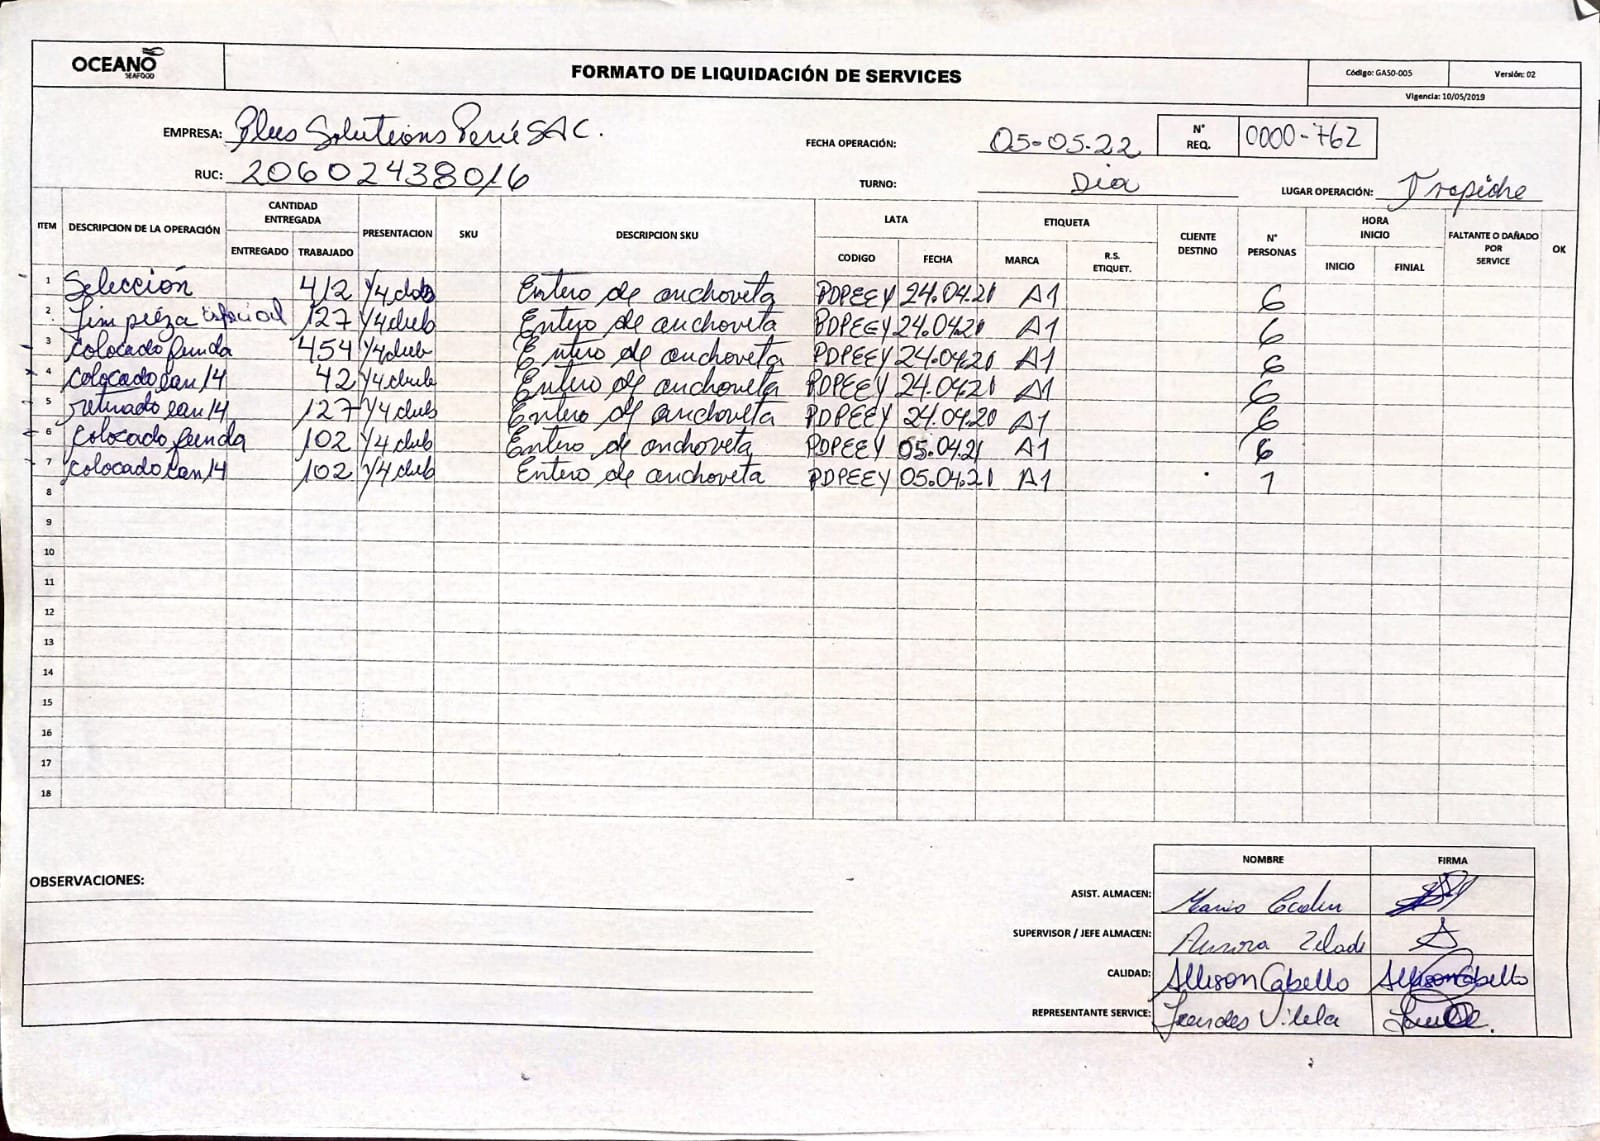 OCEANO
SEAFOOD
FORMATO DE LIQUIDACIÓN DE SERVICES
Código: GASO-005 Versión: 02
Vigencia: 10/05/2019
EMPRESA: Plus Solutions Perú SAC.
FECHA OPERACIÓN: 05-05-22
N° REQ. 0000-762
RUC: 20602438016
TURNO: Dia
LUGAR OPERACIÓN: Trapiche
ITEM DESCRIPCION DE LA OPERACIÓN CANTIDAD ENTREGADA ENTREGADO TRABAJADO PRESENTACION SKU DESCRIPCION SKU LATA CODIGO FECHA ETIQUETA MARCA R.S. ETIQUET. CLIENTE DESTINO N° PERSONAS HORA INICIO INICIO FINIAL FALTANTE O DAÑADO POR SERVICE OK
1 Selección 412 1/4 club Entero de anchoveta PDPEEY 24.04.21 A1 6
2 Limpieza 127 1/4 club Entero de anchoveta PDPEEY 24.04.21 A1 6
3 Colocado funda 454 1/4 club Entero de anchoveta PDPEEY 24.04.20 A1 6
4 Colocado can 14 42 1/4 club Entero de anchoveta PDPEEY 24.04.21 A1 6
5 retirado can 14 127 1/4 club Entero de anchoveta PDPEEY 24.04.20 A1 6
6 Colocado funda 102 1/4 club Entero de anchoveta PDPEEY 05.04.21 A1 6
7 Colocado can 14 102 1/4 club Entero de anchoveta PDPEEY 05.04.21 A1 1
8
9
10
11
12
13
14
15
16
17
18
NOMBRE FIRMA
OBSERVACIONES:
ASIST. ALMACEN: Mario
SUPERVISOR / JEFE ALMACEN: Aurora
CALIDAD: Allison Cabello Allison Cabello
REPRESENTANTE SERVICE: Vilela